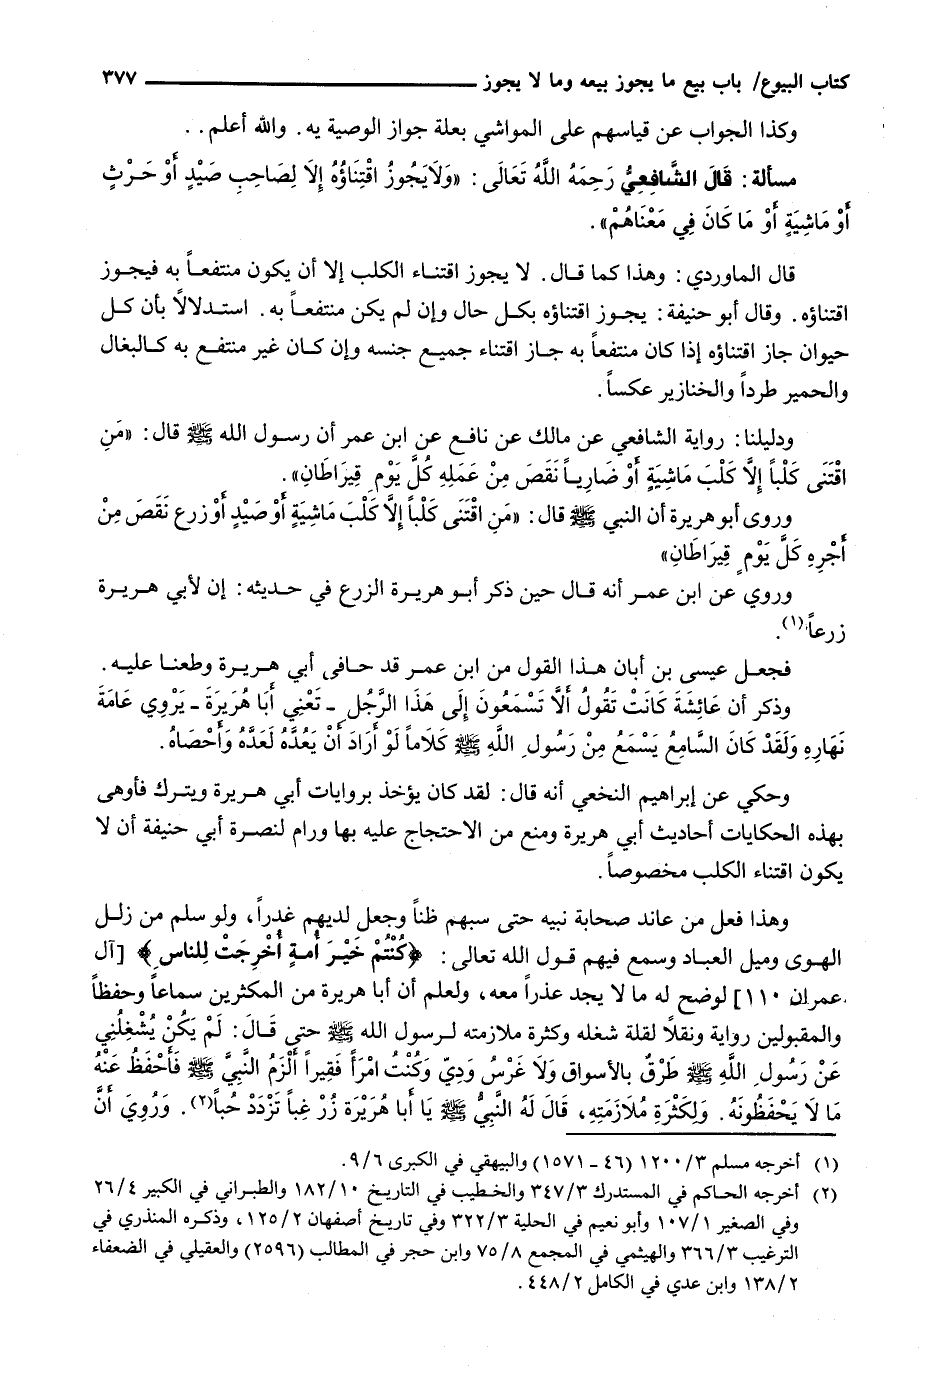 كتاب البيوع/ باب بيع ما يجوز بيعه وما لا يجوز ــــــــــــــــ ٣٧٧
وكذا الجواب عن قياسهم على المواشي بعلة جواز الوصية يه. والله أعلم. .
مسألة: قَالَ الشَّافِعِيُّ رَحِمَهُ اللَّهُ تَعَالَى: «وَلَايَجُوزُ اقْتِنَاؤُهُ إِلَا لِصَاحِبِ صَيْدٍ أَوْ حَرْثٍ
أَوْ مَاشِيَةٍ أَوْ مَا كَانَ فِي مَعْنَاهُمْ».
قال الماوردي: وهذا كما قال. لا يجوز اقتناء الكلب إلا أن يكون منتفعاً به فيجوز
اقتناؤه. وقال أبو حنيفة: يجوز اقتناؤه بكل حال وإن لم يكن منتفعاً به. استدلالاً بأن كل
حيوان جاز اقتناؤه إذا كان منتفعاً به جاز اقتناء جميع جنسه وإن كان غير منتفع به كالبغال
والحمير طرداً والخنازير عكساً.
ودليلنا: رواية الشافعي عن مالك عن نافع عن ابن عمر أن رسول الله ﷺ قال: «مَنِ
اقْتَنَى كَلْباً إِلَّا كَلْبَ مَاشِيَةٍ أَوْ ضَارِياً نَقَصَ مِنْ عَمَلِهِ كُلَّ يَوْمٍ قِيرَاطَانِ».
وروى أبو هريرة أن النبي ﷺ قال: «مَنِ اقْتَنَى كَلْباً إِلَّا كَلْبَ مَاشِيَةٍ أَوْ صَيْدٍ أَوْ زرع نَقَصَ مِنْ
أَجْرِهِ كَلَّ يَوْمٍ قِيرَاطَانِ»
وروي عن ابن عمر أنه قال حين ذكر أبو هريرة الزرع في حديثه: إن لأبي هريرة
زرعاً(١).
فجعل عيسى بن أبان هذا القول من ابن عمر قد حافى أبي هريرة وطعنا عليه.
وذكر أن عَائِشَةَ كَانَتْ تَقُولُ أَلَّا تَسْمَعُونَ إِلَى هَذَا الرَّجُلِ - تَعْنِي أَبَا هُرَيْرَةَ - يَرْوِي عَامَةَ
نَهَارِهِ وَلَقَدْ كَانَ السَّامِعُ يَسْمَعُ مِنْ رَسُولِ اللَّهِ ﷺ كَلَاماً لَوْ أَرَادَ أَنْ يَعُدَّهُ لَعَدَّهُ وَأَحْصَاهُ.
وحكي عن إبراهيم النخعي أنه قال: لقد كان يؤخذ بروايات أبي هريرة ويترك فأوهى
بهذه الحكايات أحاديث أبي هريرة ومنع من الاحتجاج عليه بها ورام لنصرة أبي حنيفة أن لا
يكون اقتناء الكلب مخصوصاً.
وهذا فعل من عاند صحابة نبيه حتى سبهم ظناً وجعل لديهم غدراً، ولو سلم من زلل
الهوى وميل العباد وسمع فيهم قول الله تعالى: ﴿كُنْتُمْ خَيْرَ أُمةٍ أُخْرِجَتْ لِلناسِ﴾ [آل
عمران ١١٠] لوضح له ما لا يجد عذراً معه، ولعلم أن أبا هريرة من المكثرين سماعاً وحفظاً
والمقبولين رواية ونقلاً لقلة شغله وكثرة ملازمته لرسول الله ﷺ حتى قَالَ: لَمْ يَكُنْ يُشْغِلُنِي
عَنْ رَسُولِ اللَّهِ ﷺ طَرْقٌ بالأسواق وَلَا غَرْسُ وَدِيّ وَكُنْتُ امْرَأً فَقِيراً أَلْزَمُ النَّبِيَّ ﷺ فَأَحْفَظُ عَنْهُ
مَا لَا يَحْفَظُونَهُ. وَلِكَثْرَةِ مُلَازَمَتِهِ، قَالَ لَهُ النَّبِيُّ ﷺ يَا أَبا هُرَيْرَة زُرْ غِباً تَزْدَدْ حُباً(٢). وَرُوِيَ أَنَّ
(١) أخرجه مسلم ١٢٠٠/٣ (٤٦ - ١٥٧١) والبيهقي في الكبرى ٩/٦.
(٢) أخرجه الحاكم في المستدرك ٣٤٧/٣ والخطيب في التاريخ ١٨٢/١٠ والطبراني في الكبير ٢٦/٤
وفي الصغير ١٠٧/١ وأبو نعيم في الحلية ٣٢٢/٣ وفي تاريخ أصفهان ١٢٥/٢، وذكره المنذري في
الترغيب ٣٦٦/٣ والهيثمي في المجمع ٧٥/٨ وابن حجر في المطالب (٢٥٩٦) والعقيلي في الضعفاء
١٣٨/٢ وابن عدي في الكامل ٤٤٨/٢.